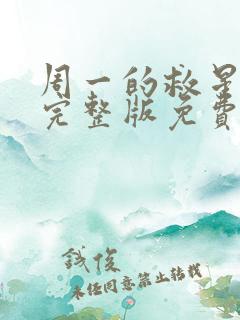 周一的救星
完整版免费
钱俊
未经同意禁止转载